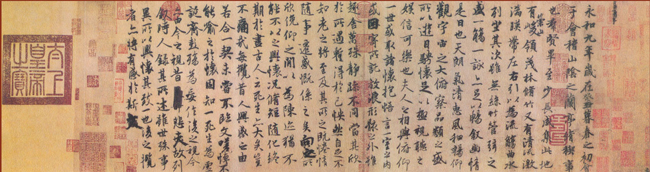 永和九年歲在癸丑暮春之初會
于會稽山陰之蘭亭脩稧事
也群賢畢至少長咸集此地
有崇山峻領茂林脩竹又有清流激
湍暎帶左右引以為流觴曲水
列坐其次雖無絲竹管弦之
盛一觴一詠亦足以暢敘幽情
是日也天朗氣清惠風和暢仰
觀宇宙之大俯察品類之盛
所以遊目騁懷足以極視聽之
娛信可樂也夫人之相與俯仰
一世或取諸懷抱悟言一室之內
或因寄所託放浪形骸之外雖
趣舍萬殊靜躁不同當其欣
於所遇暫得於己怏然自足不
知老之將至及其所之既惓情
隨事遷感慨係之矣向之所
欣俛仰之閒以為陳跡猶不
能不以之興懷況脩短隨化終
期於盡古人云死生亦大矣豈
不痛哉每攬昔人興感之由
若合一契未嘗不臨文嗟悼不
能喻之於懷固知一死生為虛
誕齊彭殤為妄作後之視今
亦由今之視昔悲夫故列
敘時人錄其所述雖世殊事
異所以興懷其致一也後之攬
者亦將有感於斯文
太上皇帝之寶